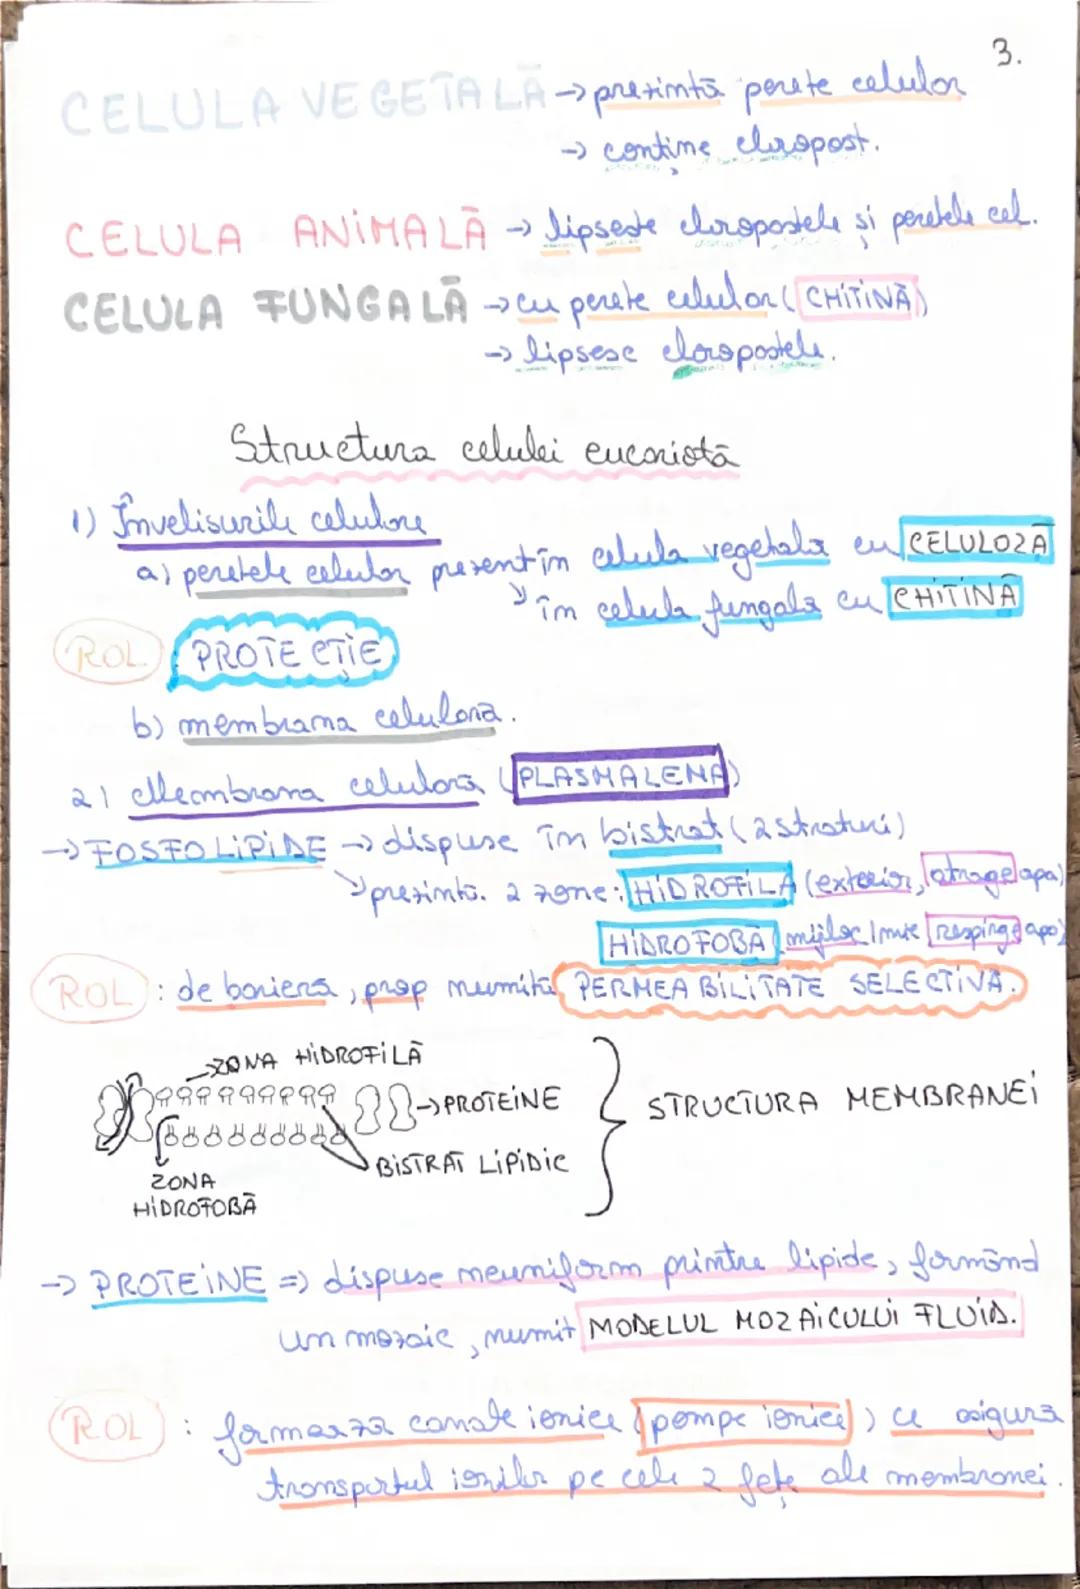 3.
CELULA VEGETALĂ → prezintă perete celular
→ conține cloropast.
CELULA ANIMALĂ → lipsește cloropastele și peretele cel.
CELULA FUNGALĂ → cu perete celular (CHITINĂ)
→ lipsesc cloropastele.
Structura celulei eucariotă
1) Învelisurile celulare
a) peretele celular prezent în celula vegetală cu CELULOZĂ
↘ în celula fungală cu CHITINĂ
ROL PROTECȚIE
b) membrana celulară.
2) Membrana celulară (PLASMALEMA)
→ FOSFOLIPIDE → dispuse în bistrat (2 straturi)
↘ prezintă. 2 zone: HIDROFILĂ (exterior, atrage apa)
HIDROFOBĂ (mijloc/mie respinge apa)
ROL : de barieră, prop numită PERMEABILITATE SELECTIVĂ.
→ ZONA HIDROFILĂ
→ PROTEINE
STRUCTURA MEMBRANEI
BISTRAT LIPIDIC
ZONA
HIDROFOBĂ
→ PROTEINE => dispuse neuniform printre lipide, formând
un mozaic, numit MODELUL MOZAICULUI FLUID.
ROL : formează canale ionice (pompe ionice) ce asigură
transportul ionilor pe cele 2 fețe ale membranei.